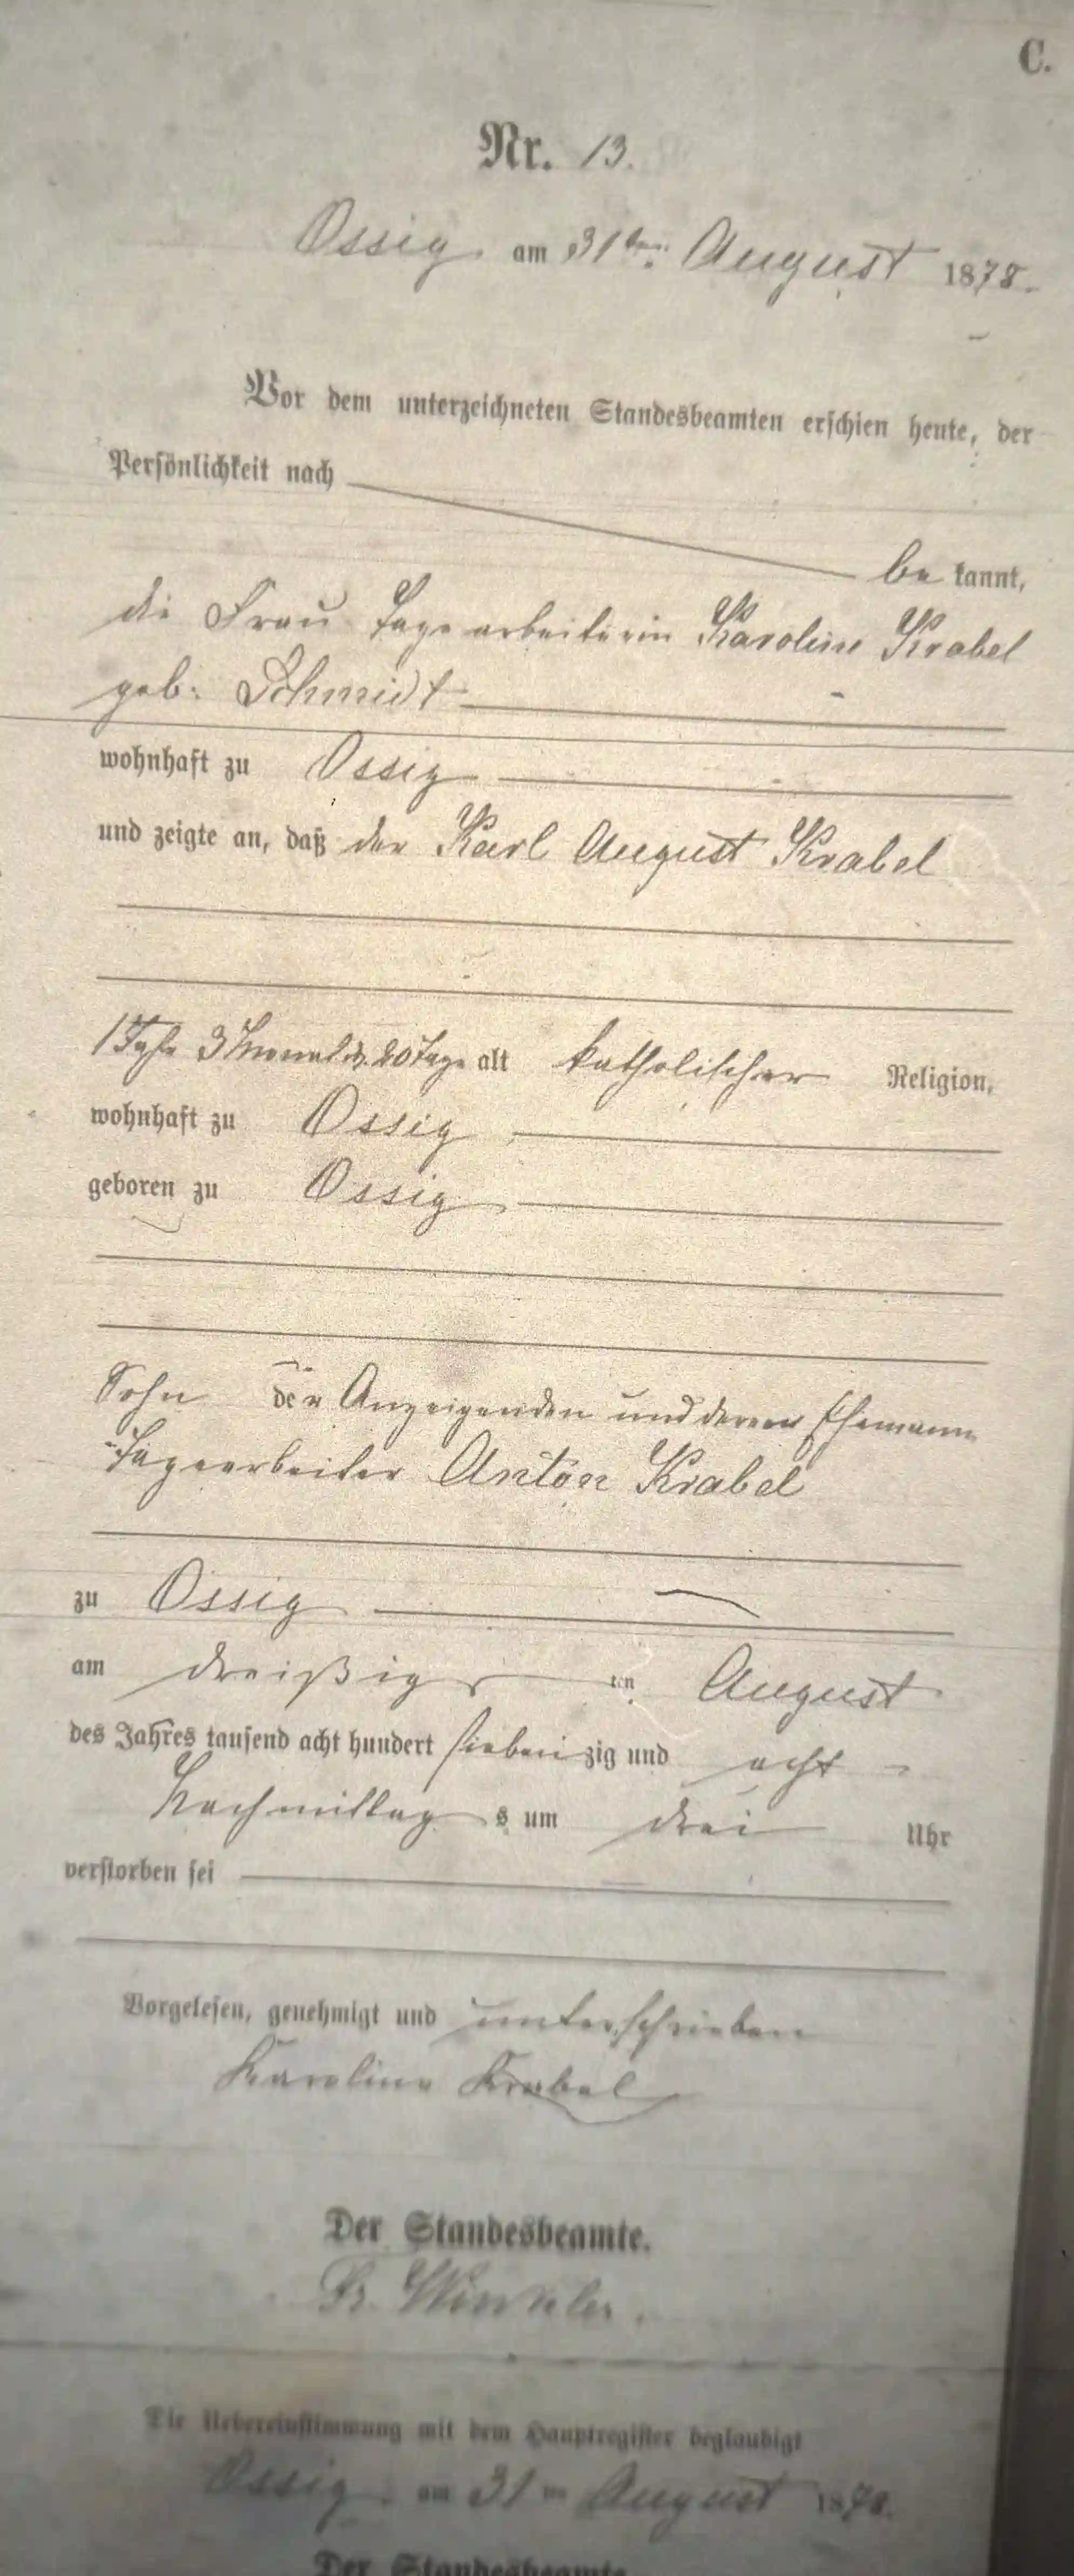 C.
Nr. 13.
Ossig am 31ten August 1878.
Vor dem unterzeichneten Standesbeamten erschien heute, der
Persönlichkeit nach
be kannt,
die Frau Tagearbeiterin Karoline Krabel
geb. Schmidt
wohnhaft zu Ossig
und zeigte an, daß der Karl August Krabel
1 Jahr 3 Monat u. 20 Tage alt katholischer Religion,
wohnhaft zu Ossig
geboren zu Ossig
Sohn der Anzeigenden und deren Ehemann
Tagearbeiter Anton Krabel
zu Ossig
am dreißigsten August
des Jahres tausend acht hundert siebenzig und acht
Nachmittags um drei Uhr
verstorben sei
Vorgelesen, genehmigt und unterschrieben
Karoline Krabel
Der Standesbeamte.
Winkler.
Die Uebereinstimmung mit dem Hauptregister beglaubigt
Ossig am 31ten August 1878.
Der Standesbeamte.